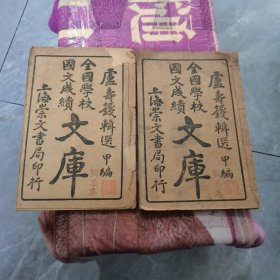 盧壽籛輯選 甲編
全國學校
國文成績
文庫
上海崇文書局印行
盧壽籛輯選 甲編
全國學校
國文成績
文庫
上海崇文書局印行